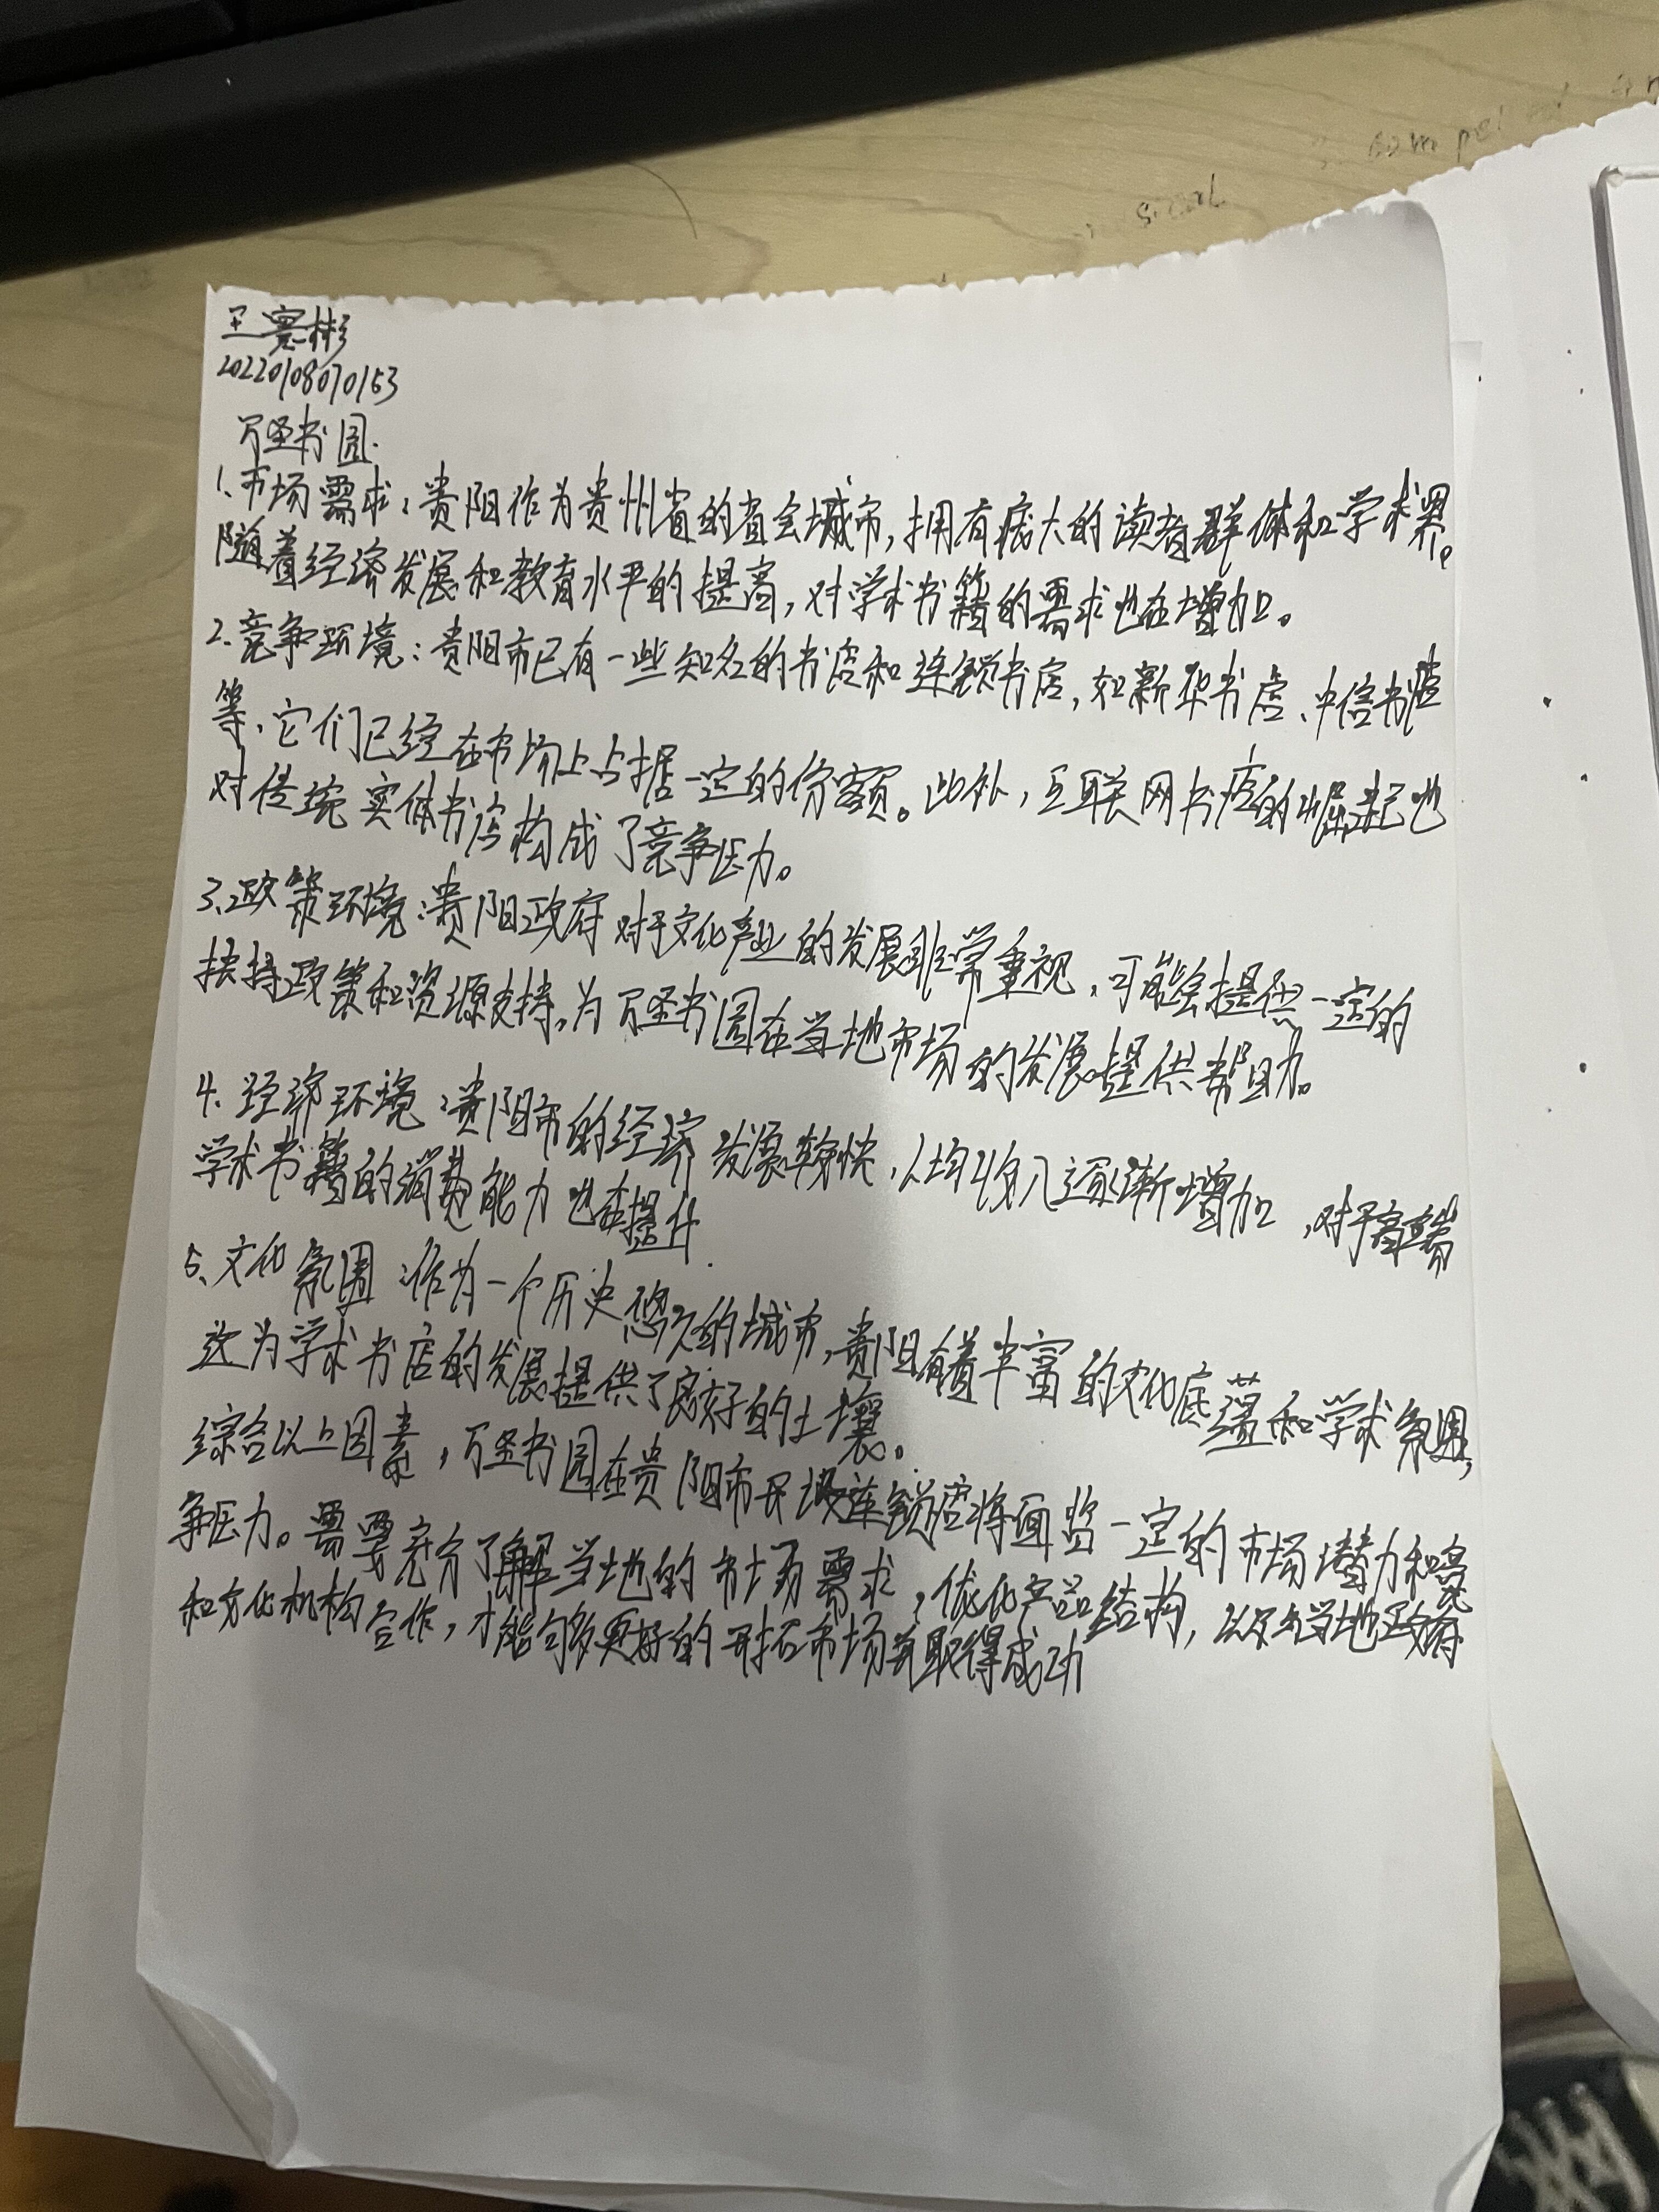 王宽彬
20220108070153
万圣书园.
1、市场需求：贵阳作为贵州省的省会城市，拥有庞大的读者群体和学术界。
随着经济发展和教育水平的提高，对学术书籍的需求也在增加。
2.竞争环境：贵阳市已有一些知名的书店和连锁书店，如新华书店、中信书店
等，它们已经在市场上占据一定的份额。此外，互联网书店的崛起也
对传统实体书店构成了竞争压力。
3、政策环境：贵阳政府对于文化产业的发展非常重视，可能会提供一定的
扶持政策和资源支持，为万圣书园在当地市场的发展提供帮助。
4、经济环境：贵阳市的经济发展较快，人均收入逐渐增加，对于高端
学术书籍的消费能力也在提升.
5、文化氛围：作为一个历史悠久的城市，贵阳有着丰富的文化底蕴和学术氛围，
这为学术书店的发展提供了良好的土壤。
综合以上因素，万圣书园在贵阳市开设连锁店将面临一定的市场潜力和竞
争压力。需要充分了解当地的市场需求，优化产品结构，以及与当地政府
和文化机构合作，才能够更好的开拓市场并取得成功
sical